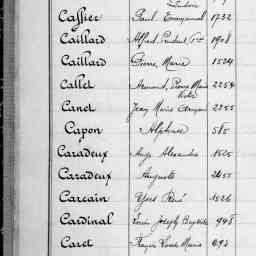 Cassier Paul Emmanuel 1732
Caillard Alfred 1908
Caillard Pierre, Marie 1524
Callet Armand, Pierre Marie 2254
Canet Jean Marie 2255
Capon Alphonse 585
Caradeux Ange Alexandre 1525
Caradeux Auguste
Carcain Yves René 1526
Cardinal Louis Joseph Baptiste 948
Caret Marie 693